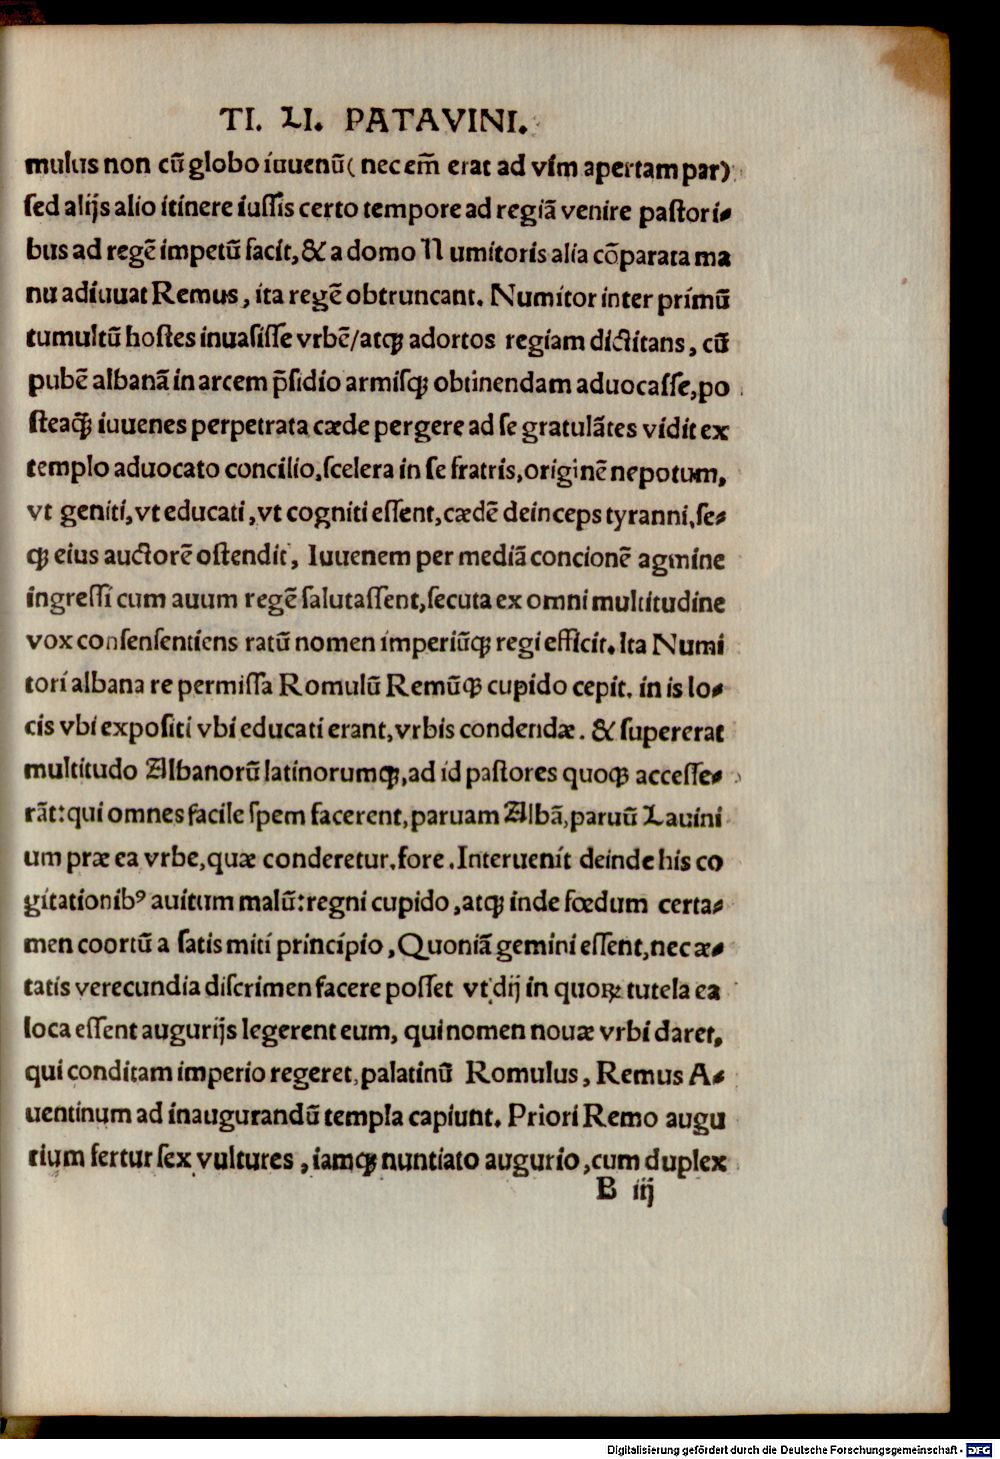 TI. LI. PATAVINI.
mulus non cũ globo iuuenũ( nec em̃ erat ad vim apertam par)
ſed alijs alio itinere iuſſis certo tempore ad regiã venire paſtori⸗
bus ad regẽ impetũ facit, & a domo N umitoris alia cõparata ma
nu adiuuat Remus, ita regẽ obtruncant. Numitor inter primũ
tumultũ hoſtes inuaſiſſe vrbẽ/atq; adortos regiam dictitans, cũ
pubẽ albanã in arcem p̃ſidio armiſq; obtinendam aduocaſſe, po
ſteaq̃; iuuenes perpetrata cæde pergere ad ſe gratulãtes vidit ex
templo aduocato concilio, ſcelera in ſe fratris, originẽ nepotum,
vt geniti, vt educati, vt cogniti eſſent, cædẽ deinceps tyranni, ſe⸗
q; eius auctorẽ oſtendit, Iuuenem per mediã concionẽ agmine
ingreſſi cum auum regẽ ſalutaſſent, ſecuta ex omni multitudine
vox conſenſentiens ratũ nomen imperiũq; regi efficit. Ita Numi
tori albana re permiſſa Romulũ Remũq; cupido cepit. in is lo⸗
cis vbi expoſiti vbi educati erant, vrbis condendæ. & ſupererat
multitudo Albanorũ latinorumq;, ad id paſtores quoq; acceſſe⸗
rãt: qui omnes facile ſpem facerent, paruam Albã, paruũ Lauini
um præ ea vrbe, quæ conderetur. fore. Interuenit deinde his co
gitationibꝰ auitum malũ: regni cupido, atq; inde fœdum certa⸗
men coortũ a ſatis miti principio, Quoniã gemini eſſent, nec æ⸗
tatis verecundia diſcrimen facere poſſet vt dij in quoꝝ tutela ea
loca eſſent augurijs legerent eum, qui nomen nouæ vrbi daret,
qui conditam imperio regeret, palatinũ Romulus, Remus A⸗
uentinum ad inaugurandũ templa capiunt. Priori Remo augu
rium fertur ſex vultures, iamq; nuntiato augurio, cum duplex
B iij
Digitalisierung gefördert durch die Deutsche Forschungsgemeinschaft - DFG